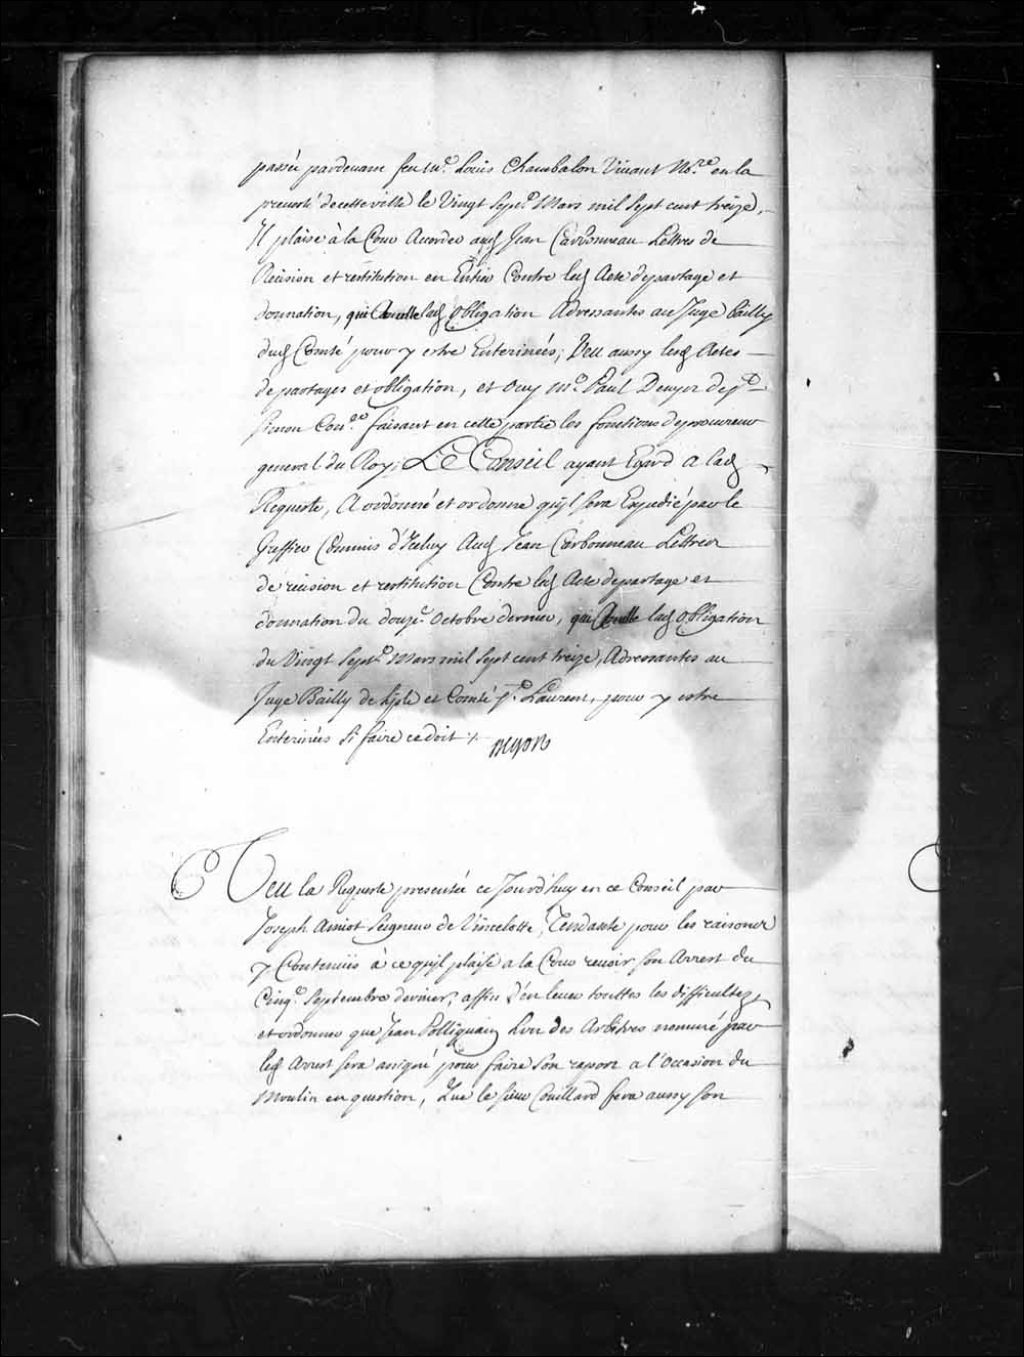 passée pardevant feu Me. Louis Chambalon Vivant No.re en la
prevosté de cette ville le Vingt Sept.e Mars mil Sept cent treize,
Il plaise à la Cour Accorder aud Jean Carbonneau Lettres de
Récision et restitution en Entier Contre led Acte de partage et
donnation, qui Annulle lad Obligation Adressantes au Juge Bailly
dud Comté pour y estre Enterinées; Veu aussy lesd Actes
de partages et obligation, et Ouy Me. Paul Denys de St
Simon Con.er faisant en cette partie les fonctions de procureur
general du Roy; Le Conseil ayant Egard a lad
Requeste, A ordonné et ordonne qu'jl sera Expedié par le
Greffier Commis d'Iceluy Aud Jean Carbonneau Lettres
de récision et restitution Contre led Acte de partage et
donnation du douz.e Octobre dernier, qui Annulle lad Obligation
du Vingt Sept.e Mars mil Sept cent treize, Adressantes au
Juge Bailly de L'jsle et Comté St. Laurent, pour y estre
Enterinées Si faire ce doit /.
Begon
Veu la Requeste presentée ce Jourd'huy en ce Conseil par
Joseph Amiot Seigneur de Vincelotte, Tendante pour les raisons
y Contenües à ce qu'jl plaise a la Cour revoir son Arrest du
Cinq.e Septembre dernier, affin d'en lever touttes les difficultez
et ordonner que Jean Polliquain L'un des Arbitres nommé par
led Arrest sera assigné pour faire Son raport a l'Occasion du
Moulin en question, Que le Sieur Couillard fera aussy son